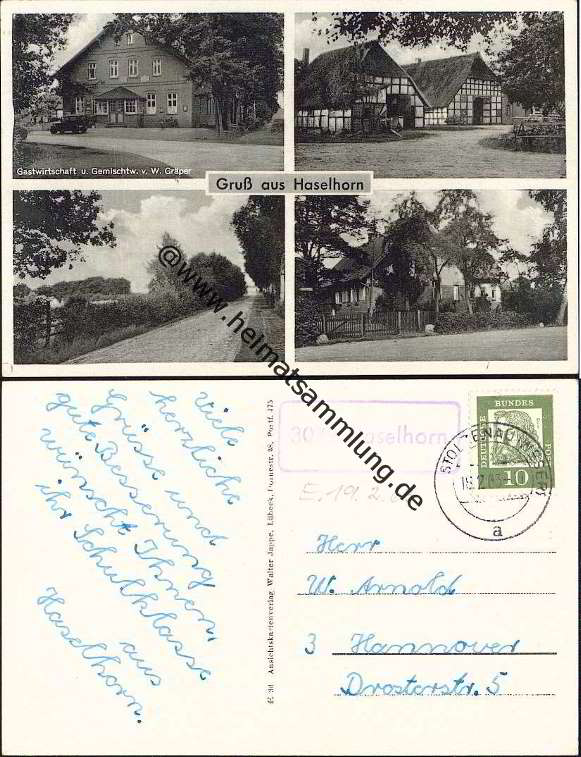 Gastwirtschaft u. Gemischtw. v. W. Gräper
Gruß aus Haselhorn
@www.heimatsammlung.de
Viele
herzliche
Grüsse und
gute Besserung
wünscht Ihnen,
ihr Schulklasse
aus
Haselhorn.
Ansichtskartenverlag Walter Jappe, Lübeck, Postf. 475
Haselhorn
E. 19.2.
DEUTSCHE
BUNDES
POST
10
STOLZENAU
a
Herr
W. Arnold
3 Hannover
Drosterstr. 5